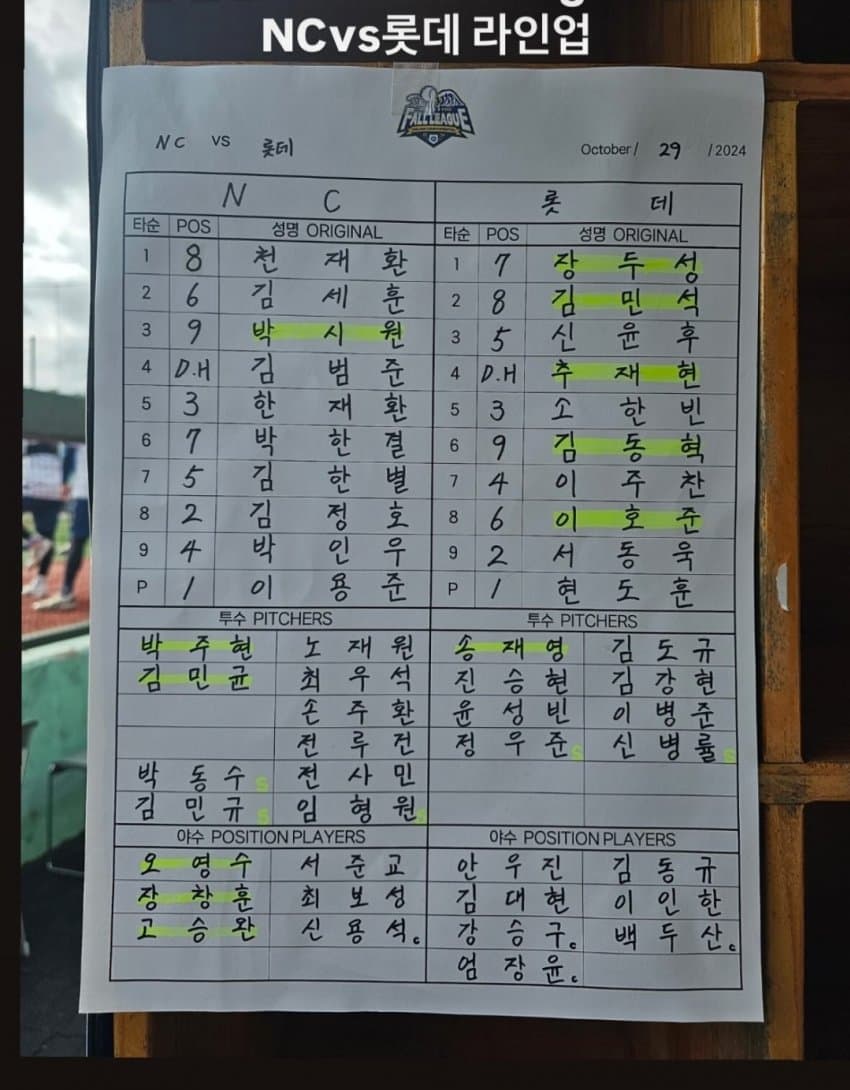 NCvs롯데 라인업
FALL LEAGUE
NC VS 롯데 October/ 29 /2024
N C 롯 데
타순 POS 성명 ORIGINAL 타순 POS 성명 ORIGINAL
1 8 천 재 환 1 7 장 두 성
2 6 김 세 훈 2 8 김 민 석
3 9 박 시 원 3 5 신 윤 후
4 D.H 김 범 준 4 D.H 추 재 현
5 3 한 재 환 5 3 소 한 빈
6 7 박 한 결 6 9 김 동 혁
7 5 김 한 별 7 4 이 주 찬
8 2 김 정 호 8 6 이 호 준
9 4 박 인 우 9 2 서 동 욱
P 1 이 용 준 P 1 현 도 훈
투수 PITCHERS 투수 PITCHERS
박 주 현 노 재 원 송 재 영 김 도 규
김 민 균 최 우 석 진 승 현 김 강 현
손 주 환 윤 성 빈 이 병 준
전 루 건 정 우 준 S 신 병 률 S
박 동 수 S 전 사 민
김 민 규 S 임 형 원 S
야수 POSITION PLAYERS 야수 POSITION PLAYERS
오 영 수 서 준 교 안 우 진 김 동 규
장 창 훈 최 보 성 김 대 현 이 인 한
고 승 완 신 용 석 c 강 승 구 c 백 두 산 c
엄 장 윤 c